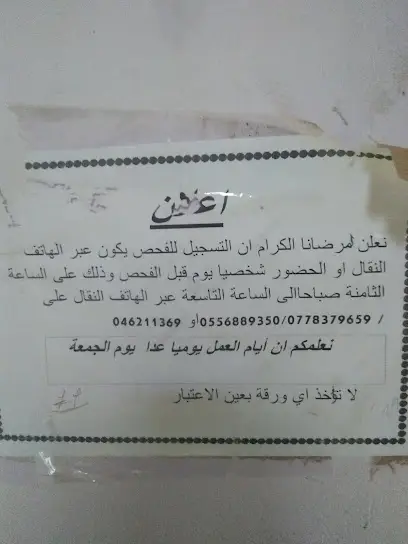 إعلان
نعلن لمرضانا الكرام ان التسجيل للفحص يكون عبر الهاتف
النقال او الحضور شخصيا يوم قبل الفحص وذلك على الساعة
الثامنة صباحاالى الساعة التاسعة عبر الهاتف النقال على
/ 0556889350/0778379659او 046211369
نعلمكم ان أيام العمل يوميا عدا يوم الجمعة
لا تؤخذ اي ورقة بعين الاعتبار